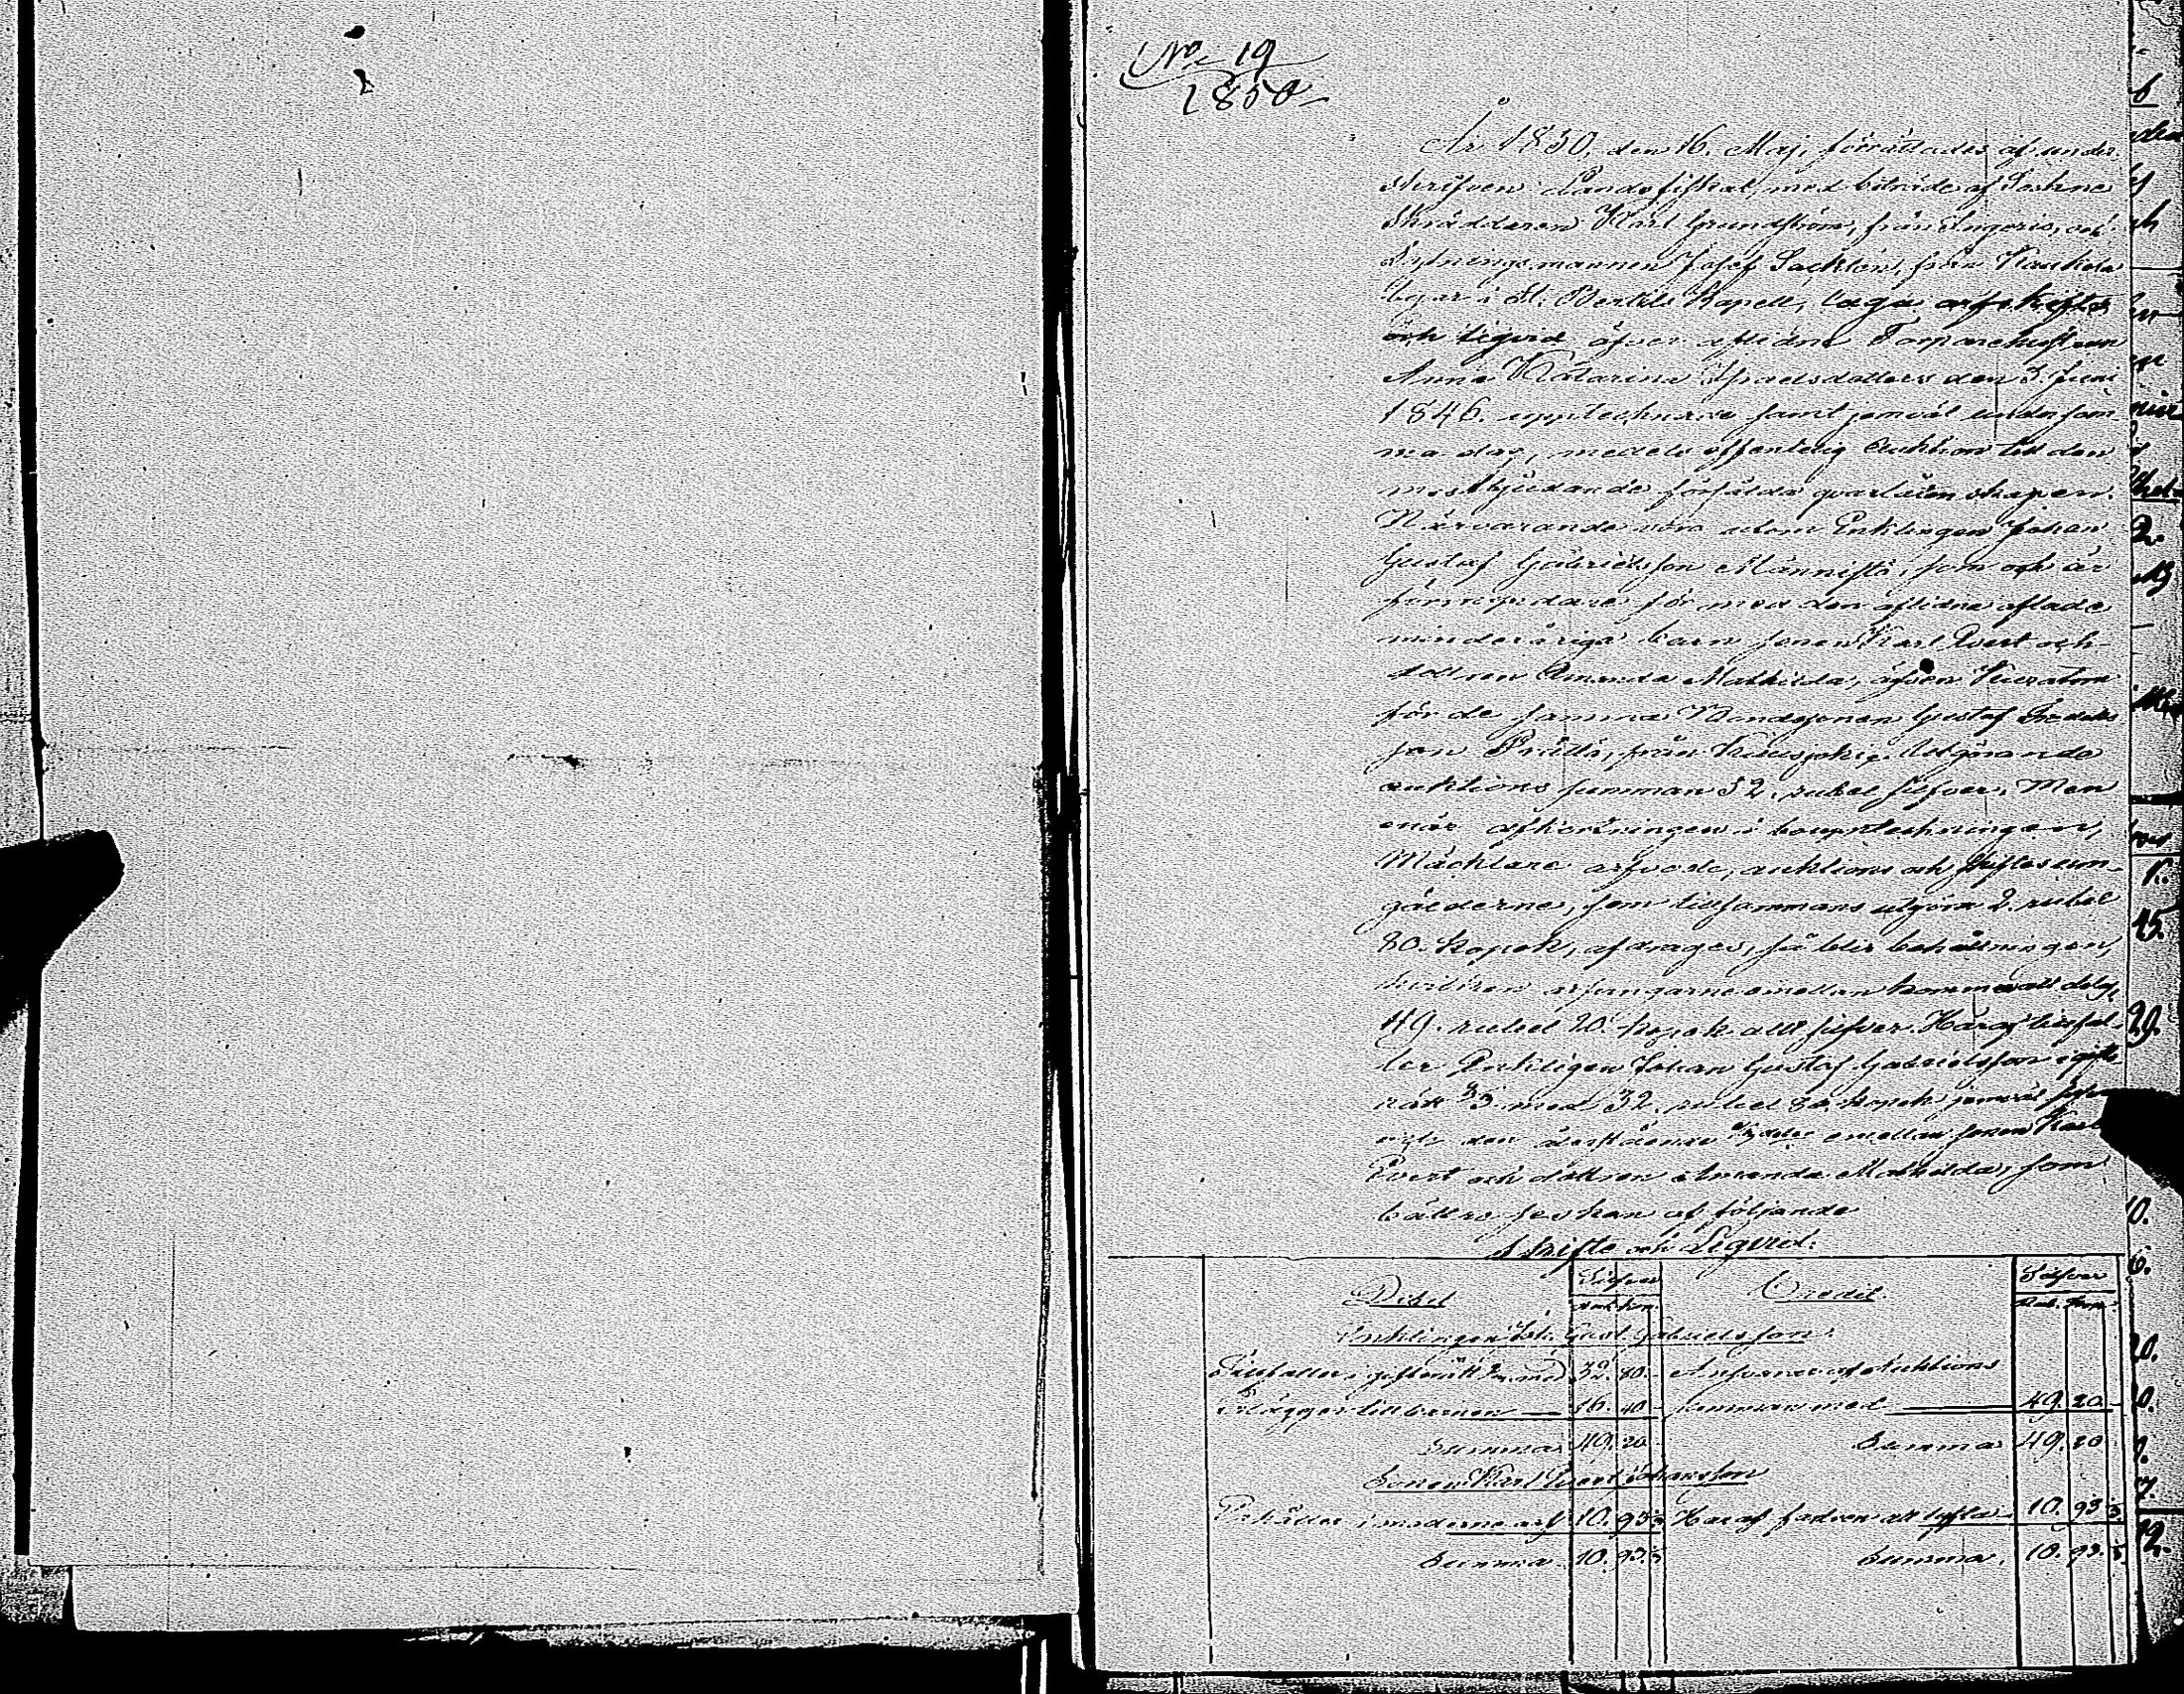 No 19
1850
År 1850, den 16. Maj, förrättades af under-
skrifven Länsfiskal, med biträde af Sockne
Skräddaren Karl Grundström, från Ingeris, och
Länsmannen Josef Sacklén, från Kauhela
byar i St. Bertils Kapell, laga arfskifte
och liqvid öfver aflidne Torparehustrun
Anna Katarina Israelsdotters den 3. Juni
1846. upptecknade samt jemväl under sam-
ma dag, medels offentelig auktion till den
mestbjudande försålda qvarlåtenskapen.
Närvarande voro utom Enklingen Johan
Gustaf Gabrielsson Männistö, som och är
förmyndare för med den aflidna aflade
minderåriga barn sonen Karl Evert och
dottren Amanda Mathilda, äfven Kurator
för de samma Bondesonen Gustaf
son från Kuusjoki. Utgörande
auktions summan 52. rubel silfver. Men
enär afkortningen i bouptechningen,
Mäcklare arfvode, auktions och skiftesom-
gälderne, som tillsammans utgöra 2. rubel
80. kopek, afdrages, så blir behållningen,
hvilken arfvingarne emellan kommer att delas,
49. rubel 20. kopek allt silfver. Häraf tillfal-
ler Enklingen Johan Gustaf Gabrielsson i gifto
rätt 2/3 med 32. rubel 80. kopek jemväl
den återstående 1/3 delen emellan sonen Karl
Evert och dottren Amanda Mathilda, som
bättre ses kan af följande
Skifte och Liqvid.
Debet Silfver Credit. Silfver
Rub. Kop. Rub. Kop.
Enklingen Joh. Gust. Gabrielsson.
Tillfaller i giftorätt 2/3 med 32. 80. Ansvarar af Auktions
Utlägger till barnen 16. 40 summan med 49. 20.
Summa 49. 20 Summa 49. 20
Sonen Karl Evert Johansson
Erhåller i möderne arf 10. 93 1/3 Haraf fadren att lyfta 10. 93 1/3
Summa 10. 93 1/3 Summa. 10. 93 1/3